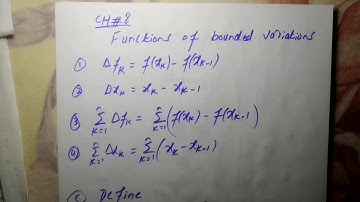 CH#8
Functions of bounded variations
① Δfₖ = f(xₖ) - f(xₖ₋₁)
② Δxₖ = xₖ - xₖ₋₁
③ ∑ₖ₌₁ⁿ Δfₖ = ∑ₖ₌₁ⁿ (f(xₖ) - f(xₖ₋₁))
④ ∑ₖ₌₁ⁿ Δxₖ = ∑ₖ₌₁ⁿ (xₖ - xₖ₋₁)
⑤ Define